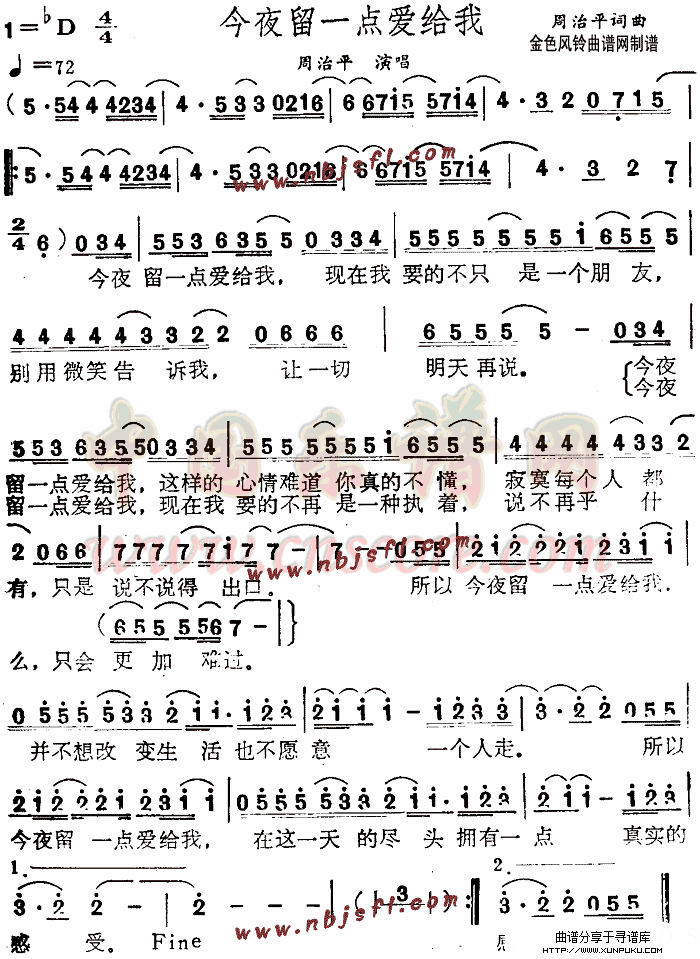 1=♭D 4/4 今夜留一点爱给我 周治平词曲
金色风铃曲谱网制谱
♩=72 周治平 演唱
(5·54444234|4·5330216|66715 5714|4·320715|
5·54444234|4·5330216|66715 5714|4·327
2/4 6)034|553635 50334|555555516555 5|
今夜 留一点爱给我, 现在我 要的不只 是一个朋友,
4444433220666|65555-034|
别用微笑告 诉我, 让一切 明天再说。 今夜
今夜
553635 50334|555555516555 5|44444332
留一点爱给我,这样的 心情难道 你真的不 懂, 寂寞每个人 都
留一点爱给我,现在我 要的不再 是一种执 着, 说不再乎 什
2066|77777177-|7--055|2122221231 1|
有,只是 说不说得 出口。 所以 今夜留 一点爱给我.
(6555567-|}
么,只会 更加 难过。
0555533211·123|211-1233|3·22055|
并不想改 变生 活也不愿 意 一个人走。 所以
2122221231 1|0555533211·123|
今夜留 一点爱给我, 在这一天 的尽 头 拥有一 点 真实的
1. 2.
3·22-|2---(-3-):|3·22055|
感 受。Fine
www.nbjsfl.com
www.nbjsfl.com
www.nbjsfl.com
中国乐谱网
www.cnscore.com
曲谱分享于寻谱库
WWW.XUNPUKU.COM